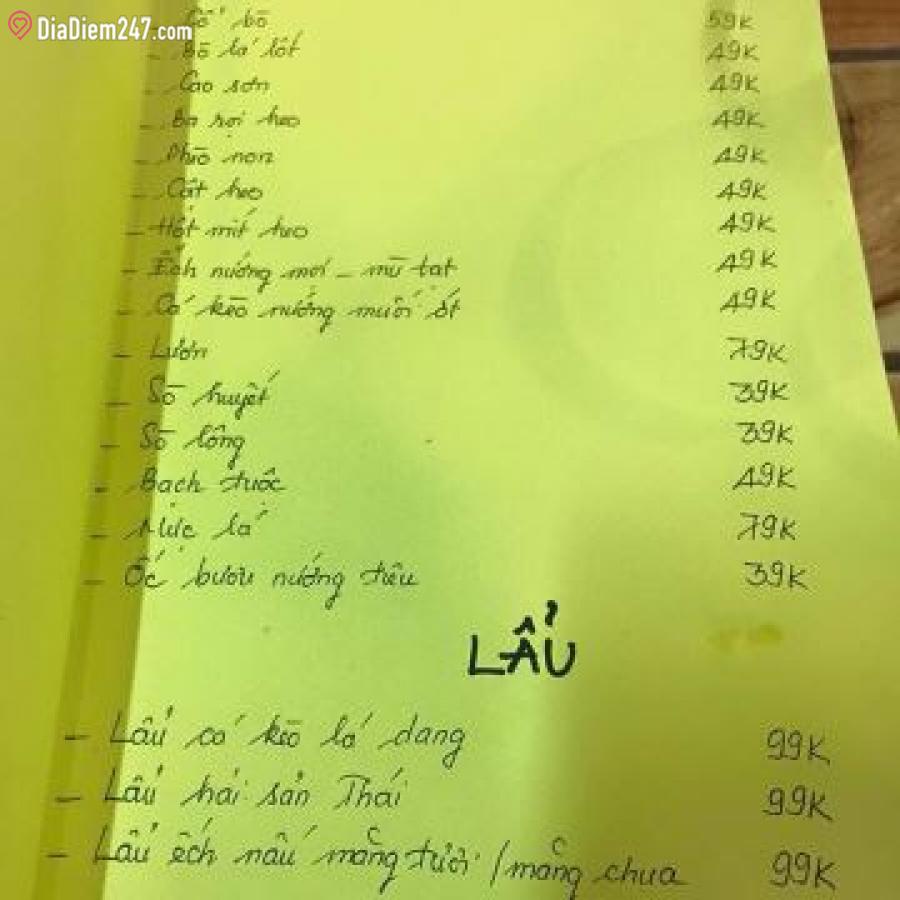 DiaDiem247.com
Cổ bò 59K
- Bò lá lốt 49K
- Cao sơn 49K
- Ba rọi heo 49K
- Phèo non 49K
- Cật heo 49K
- Hột mít heo 49K
- Ếch nướng mọi - mù tạt 49K
- Cá kèo nướng muối ớt 49K
- Lươn 79K
- Sò huyết 39K
- Sò lông 39K
- Bạch tuộc 49K
- Mực lá 79K
- Ốc bươu nướng tiêu 39K
LẨU
- Lẩu cá kèo lá dang 99K
- Lẩu hải sản Thái 99K
- Lẩu ếch nấu măng tươi / măng chua 99K